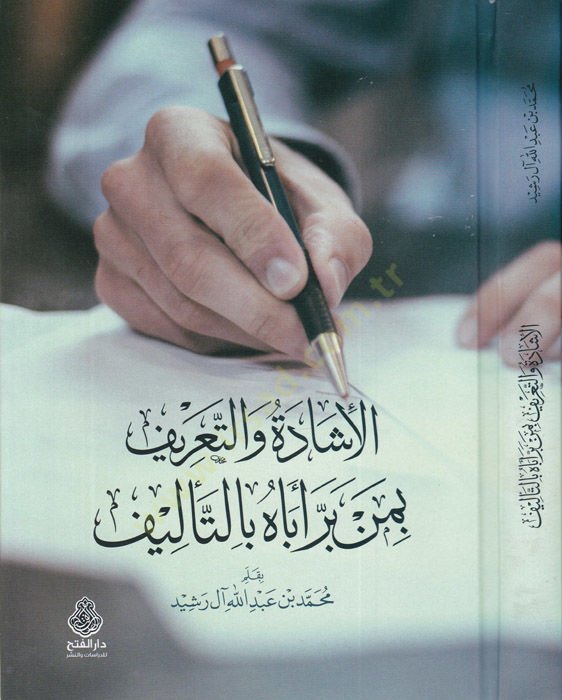 الأشادة والتعريف
بمن بر أباه بالتأليف
بقلم
محمد بن عبد الله آل رشيد
دار الفتح
للدراسات والنشر
محمد بن عبد الله آل رشيد
الأشادة والتعريف بمن بر أباه بالتأليف